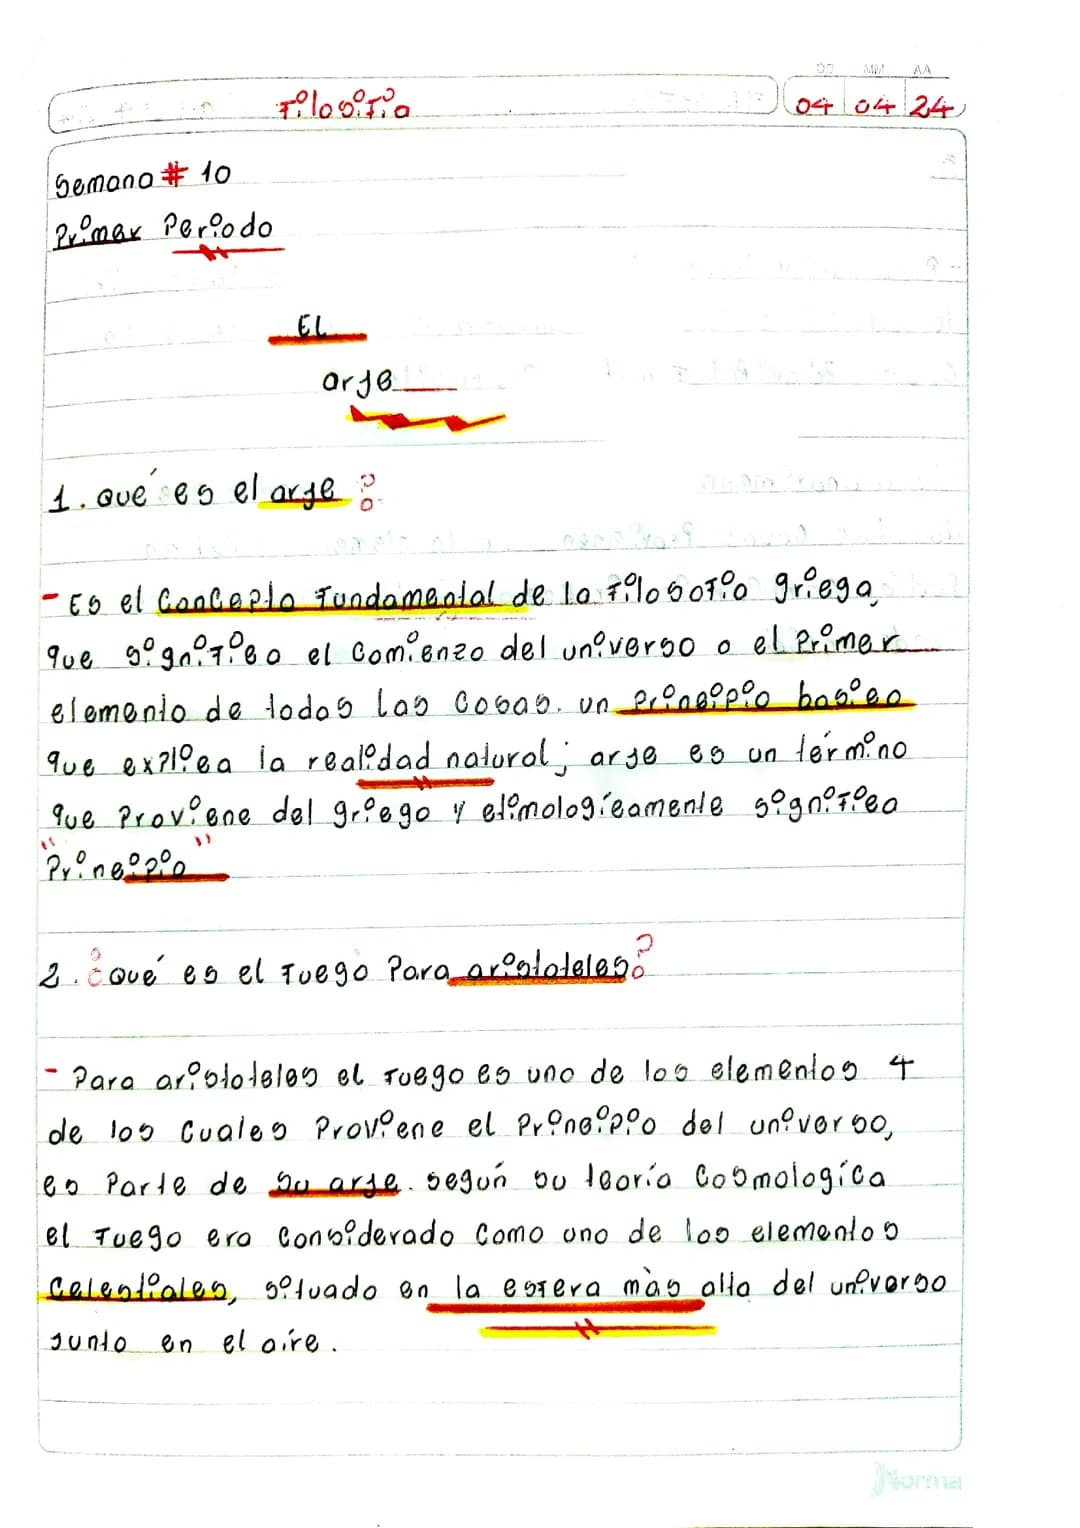 DD MM AA
Filosofia 04 04 24
Semana # 10
Primer Periodo
EL
arje
1. qué es el arje ?
- Es el Concepto Fundamental de la Filosofia griega,
que significa el Comienzo del universo o el Primer
elemento de todas las Cosas. un Principio basico
que explica la realidad natural; arje es un término
que Proviene del griego y etimologícamente significa
"Principio"
2. ¿qué es el Fuego Para aristoteles?
- Para aristoteles el Fuego es uno de los elementos 4
de los Cuales Proviene el Principio del universo,
es Parte de su arje. según su teoría Cosmologíca
el Fuego era Considerado Como uno de los elementos
Celestiales, situado en la esfera màs alta del universo
Junto en el aire.
Norma